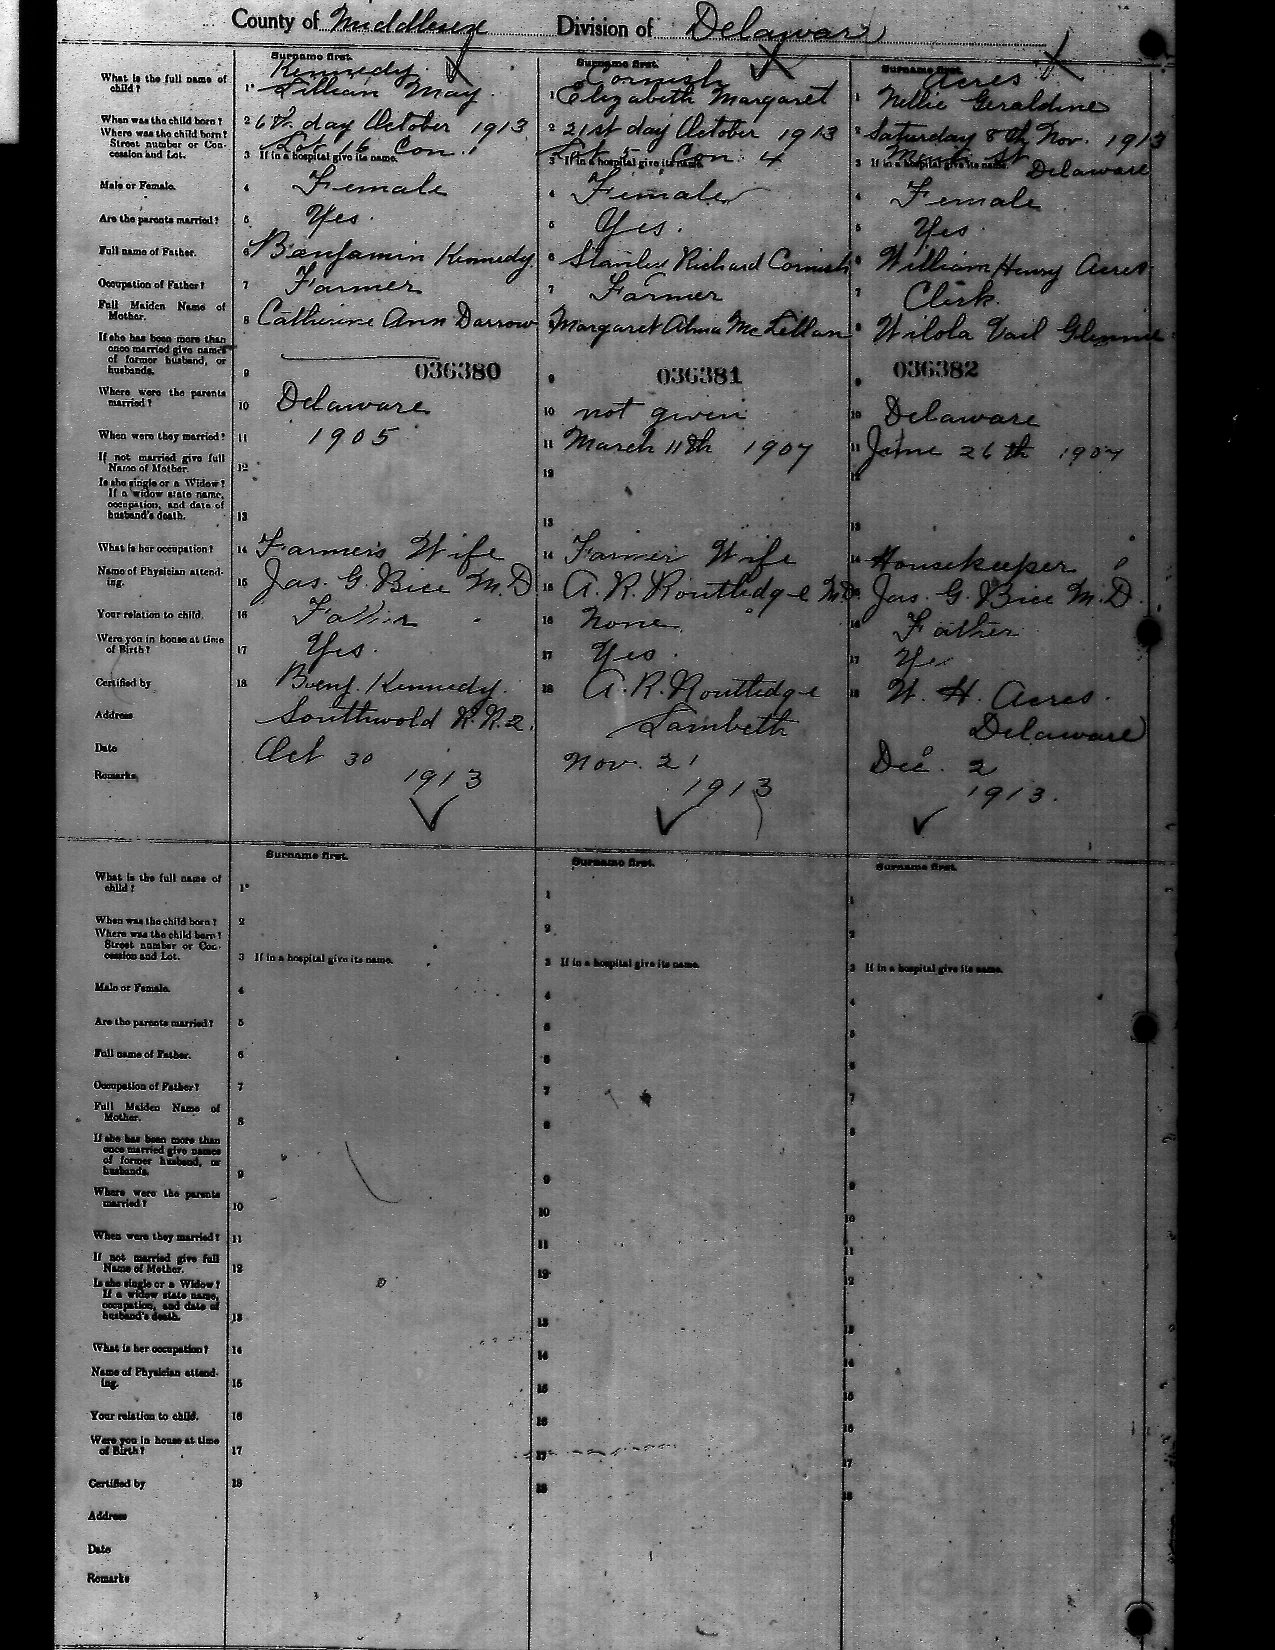 County of Middlesex Division of Delaware
Surname first. Surname first. Surname first.
What is the full name of child? 1 Kennedy Lillian May 1 Cornish Elizabeth Margaret 1 Acres Nellie Geraldine
When was the child born? 2 6th day October 1913 2 21st day October 1913 2 Saturday 8th Nov. 1913
Where was the child born? Street number or Concession and Lot. 3 If in a hospital give its name. Lot 16 Con. 1 3 If in a hospital give its name. Lot 5 Con. 4 3 If in a hospital give its name. St Delaware
Male or Female. 4 Female 4 Female 4 Female
Are the parents married? 5 Yes. 5 Yes. 5 Yes.
Full name of Father. 6 Benjamin Kennedy 6 Stanley Richard Cornish 6 William Henry Acres
Occupation of Father? 7 Farmer 7 Farmer 7 Clerk.
Full Maiden Name of Mother. 8 Catherine Ann Darrow 8 Margaret Alma McLellan 8 Wilola Vail
If she has been more than once married give names of former husband, or husbands. 9 036380 9 036381 9 036382
Where were the parents married? 10 Delaware 10 not given 10 Delaware
When were they married? 11 1905 11 March 11th 1907 11 June 26th 1907
If not married give full Name of Mother. 12 12 12
Is she single or a Widow? If a widow state name, occupation, and date of husband's death. 13 13 13
What is her occupation? 14 Farmers Wife 14 Farmer Wife 14 Housekeeper
Name of Physician attending. 15 Jas. G. Bice M.D 15 A. R. Routledge M.D. 15 Jas. G. Bice M.D.
Your relation to child. 16 Father 16 None 16 Father
Were you in house at time of Birth? 17 Yes. 17 Yes. 17 Yes
Certified by 18 Benj. Kennedy. 18 A. R. Routledge 18 W. H. Acres.
Address Southwold R.R.2. Lambeth Delaware
Date Oct 30 1913 Nov. 21 1913 Dec. 2 1913.
Remarks.
Surname first. Surname first. Surname first.
What is the full name of child? 1 1 1
When was the child born? 2 2 2
Where was the child born? Street number or Concession and Lot. 3 If in a hospital give its name. 3 If in a hospital give its name. 3 If in a hospital give its name.
Male or Female. 4 4 4
Are the parents married? 5 5 5
Full name of Father. 6 6 6
Occupation of Father? 7 7 7
Full Maiden Name of Mother. 8 8 8
If she has been more than once married give names of former husband, or husbands. 9 9 9
Where were the parents married? 10 10 10
When were they married? 11 11 11
If not married give full Name of Mother. 12 12 12
Is she single or a Widow? If a widow state name, occupation, and date of husband's death. 13 13 13
What is her occupation? 14 14 14
Name of Physician attending. 15 15 15
Your relation to child. 16 16 16
Were you in house at time of Birth? 17 17 17
Certified by 18 18 18
Address
Date
Remarks